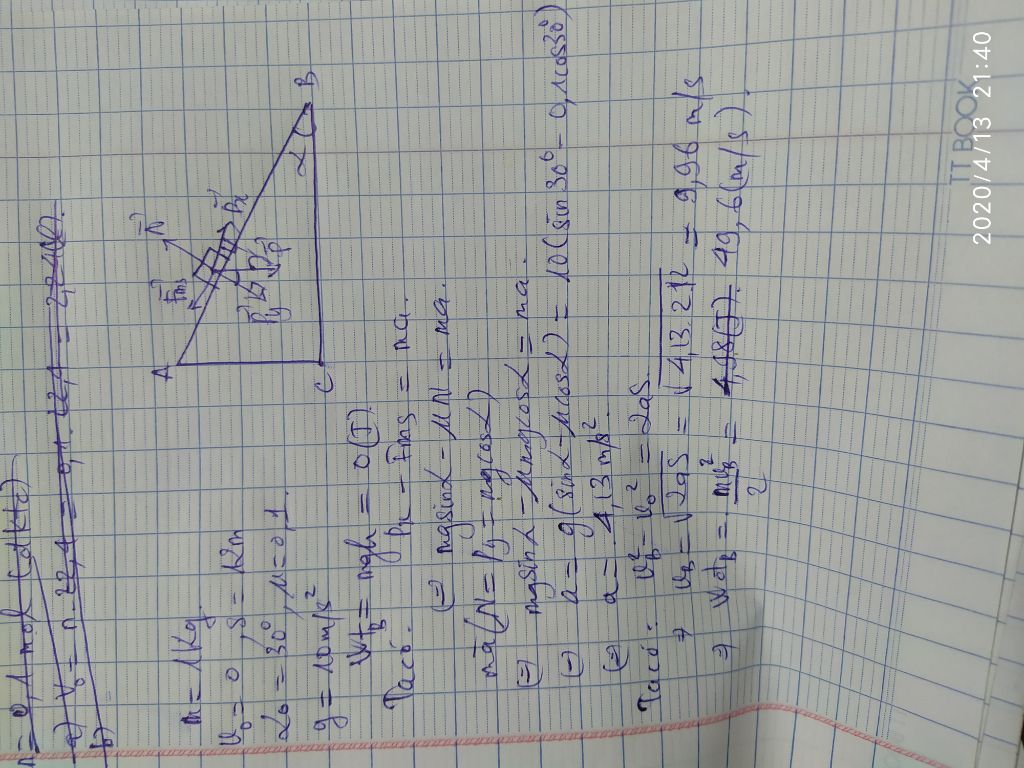 n = 0,1 mol (đktc)
a) V₀ = n.22,4 = 0,1.22,4 = 2,24(l).
b)
A
Fms
N
Py
P
Px
α
B
C
m = 1kg
v₀ = 0, S = 12m
α₀ = 30°, μ = 0,1.
g = 10m/s²
WtB = mgh = 0(J).
Ta có: Px - Fms = ma.
(=) mgsinα - μN = ma.
mà (N = Py = mgcosα)
(=) mgsinα - μmgcosα = ma.
(=) a = g(sinα - μcosα) = 10(sin30° - 0,1cos30°)
(=) a = 4,13 m/s².
Ta có: vB² - v₀² = 2aS.
⇒ vB = √2aS = √4,13.2.12 = 9,96 m/s
⇒ WđB = mvB²/2 = 4,98(J). 49,6(m/s).
TT BOOK
2020/4/13 21:40